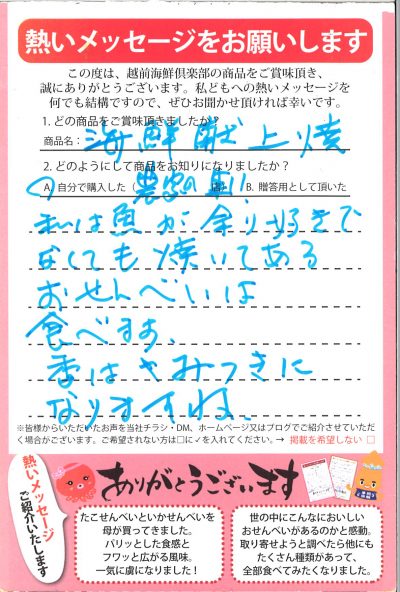 熱いメッセージをお願いします
この度は、越前海鮮倶楽部の商品をご賞味頂き、
誠にありがとうございます。私どもへの熱いメッセージを
何でも結構ですので、ぜひお聞かせ頂ければ幸いです。
1. どの商品をご賞味頂きましたか?
商品名: 海鮮献上焼
2. どのようにして商品をお知りになりましたか?
A. 自分で購入した( 店) B. 贈答用として頂いた
私は魚が余り好きで
なくても焼いてある
おせんべいは
食べます、
香はやみつきに
なりますね、
※皆様からいただいたお声を当社チラシ・DM、ホームページ又はブログでご紹介させていただ
く場合がございます。ご希望されない方は□に✓を入れてください。→ 掲載を希望しない □
熱いメッセージ
ご紹介いたします
ありがとうございます
たこせんべいといかせんべいを
母が買ってきました。
パリッとした食感と
フワッと広がる風味。
一気に虜になりました!
世の中にこんなにおいしい
おせんべいがあるのかと感動。
取り寄せようと調べたら他にも
たくさん種類があって、
全部食べてみたくなりました。